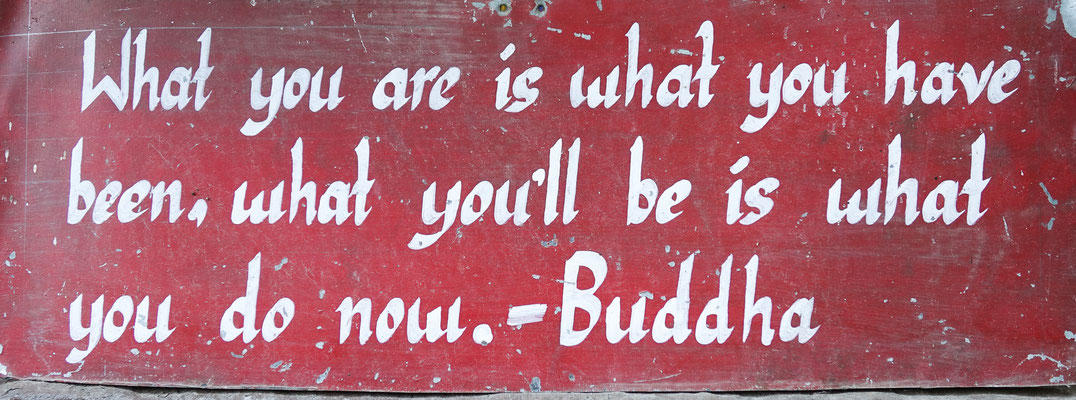 What you are is what you have
been, what you'll be is what
you do now. - Buddha